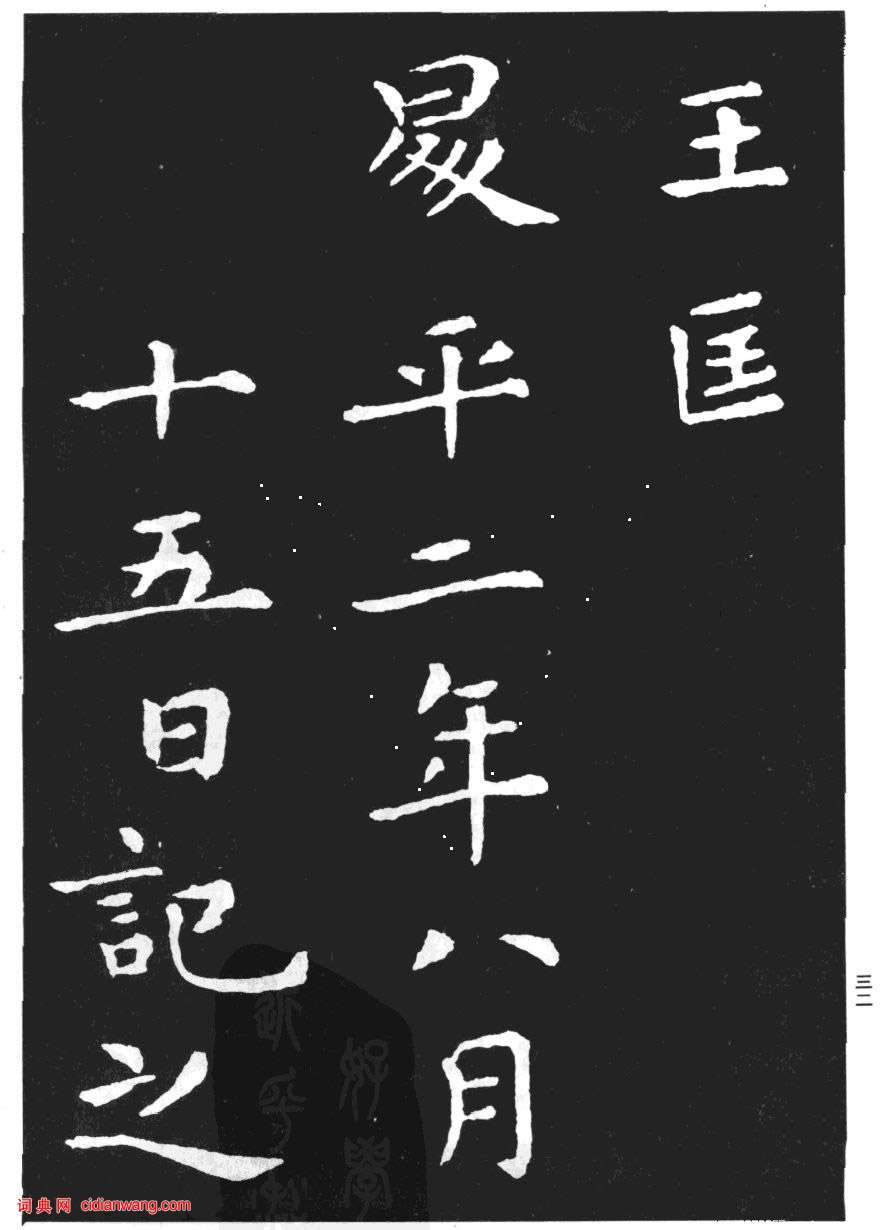 王匡
㝡平二年八月
十五日記之
三二
好學
近乎
词典网 cidianwang.com